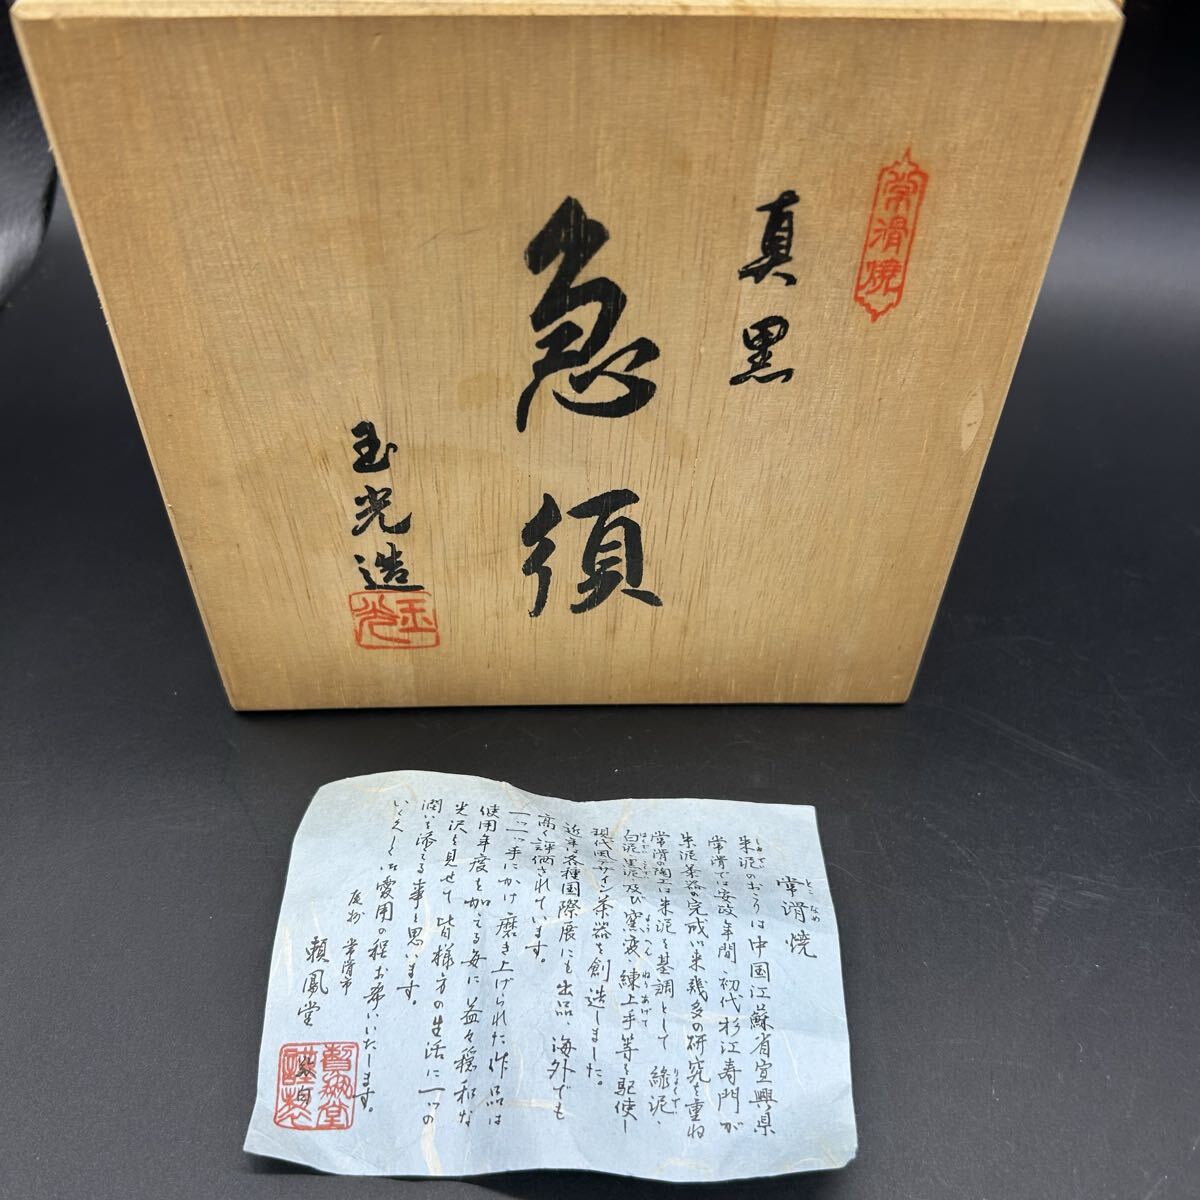 常滑焼
真黒
急須
玉光造
玉光
常滑焼
とこなめ
朱泥のおこりは中国江蘇省宜興県
しゅでい
常滑では安政年間、初代杉江寿門が
朱泥茶器の完成以来幾多の研究を重ね
常滑の陶工は朱泥を基調として緑泥、
りょくでい
白泥、黒泥及び窯変、練上手等を駆使し
現代風デザイン茶器を創造しました。
近年は各種国際展にも出品、海外でも
高く評価されています。
一つ一つ手にかけ磨き上げられた作品は
使用年度を加える毎に益々穏和な
光沢を見せて皆様方の生活に一つの
潤いを添える事と思います。
いく久しくご愛用の程お希いいたします。
尾州 常滑市
頼鳳堂